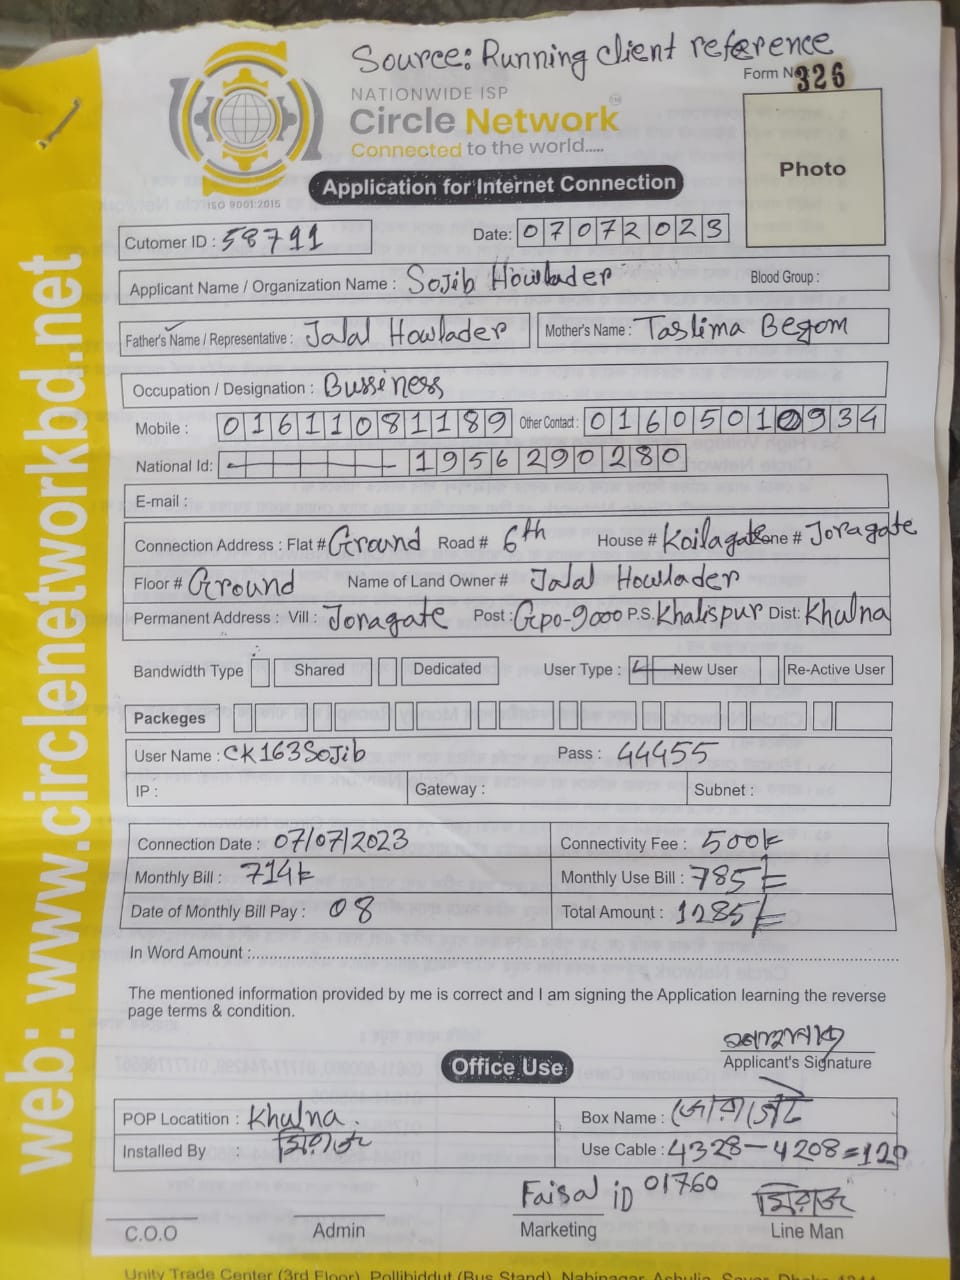 Source: Running client reference
Form No 326
NATIONWIDE ISP
Circle Network
Connected to the world.....
ISO 9001:2015
Application for Internet Connection
Photo
Cutomer ID : 58791 Date: 07072023
Applicant Name / Organization Name : Sojib Howlader Blood Group :
Father's Name / Representative : Jalal Howlader Mother's Name : Taslima Begom
Occupation / Designation : Bussiness
Mobile : 01611081189 Other Contact : 01605010934
National Id: 1956290280
E-mail :
Connection Address : Flat # Ground Road # 6th House # Koilagate Zone # Joragate
Floor # Ground Name of Land Owner # Jalal Howlader
Permanent Address : Vill : Joragate Post : Gpo-9000 P.S. Khalispur Dist: Khulna
Bandwidth Type Shared Dedicated User Type : New User Re-Active User
Packeges
User Name : CK163Sojib Pass : 44455
IP : Gateway : Subnet :
Connection Date : 07/07/2023 Connectivity Fee : 500
Monthly Bill : 714 Monthly Use Bill : 785
Date of Monthly Bill Pay : 08 Total Amount : 1285
In Word Amount :
The mentioned information provided by me is correct and I am signing the Application learning the reverse
page terms & condition.
Applicant's Signature
Office Use
POP Locatition : Khulna Box Name :
Installed By : মিরাজ Use Cable : 4328-4208=120
Faisal iD 01760 মিরাজ
C.O.O Admin Marketing Line Man
Unity Trade Center (3rd Floor), Pollibiddut (Bus Stand), Nabinagar, Ashulia, Savar, Dhaka-1344
web: www.circlenetworkbd.net